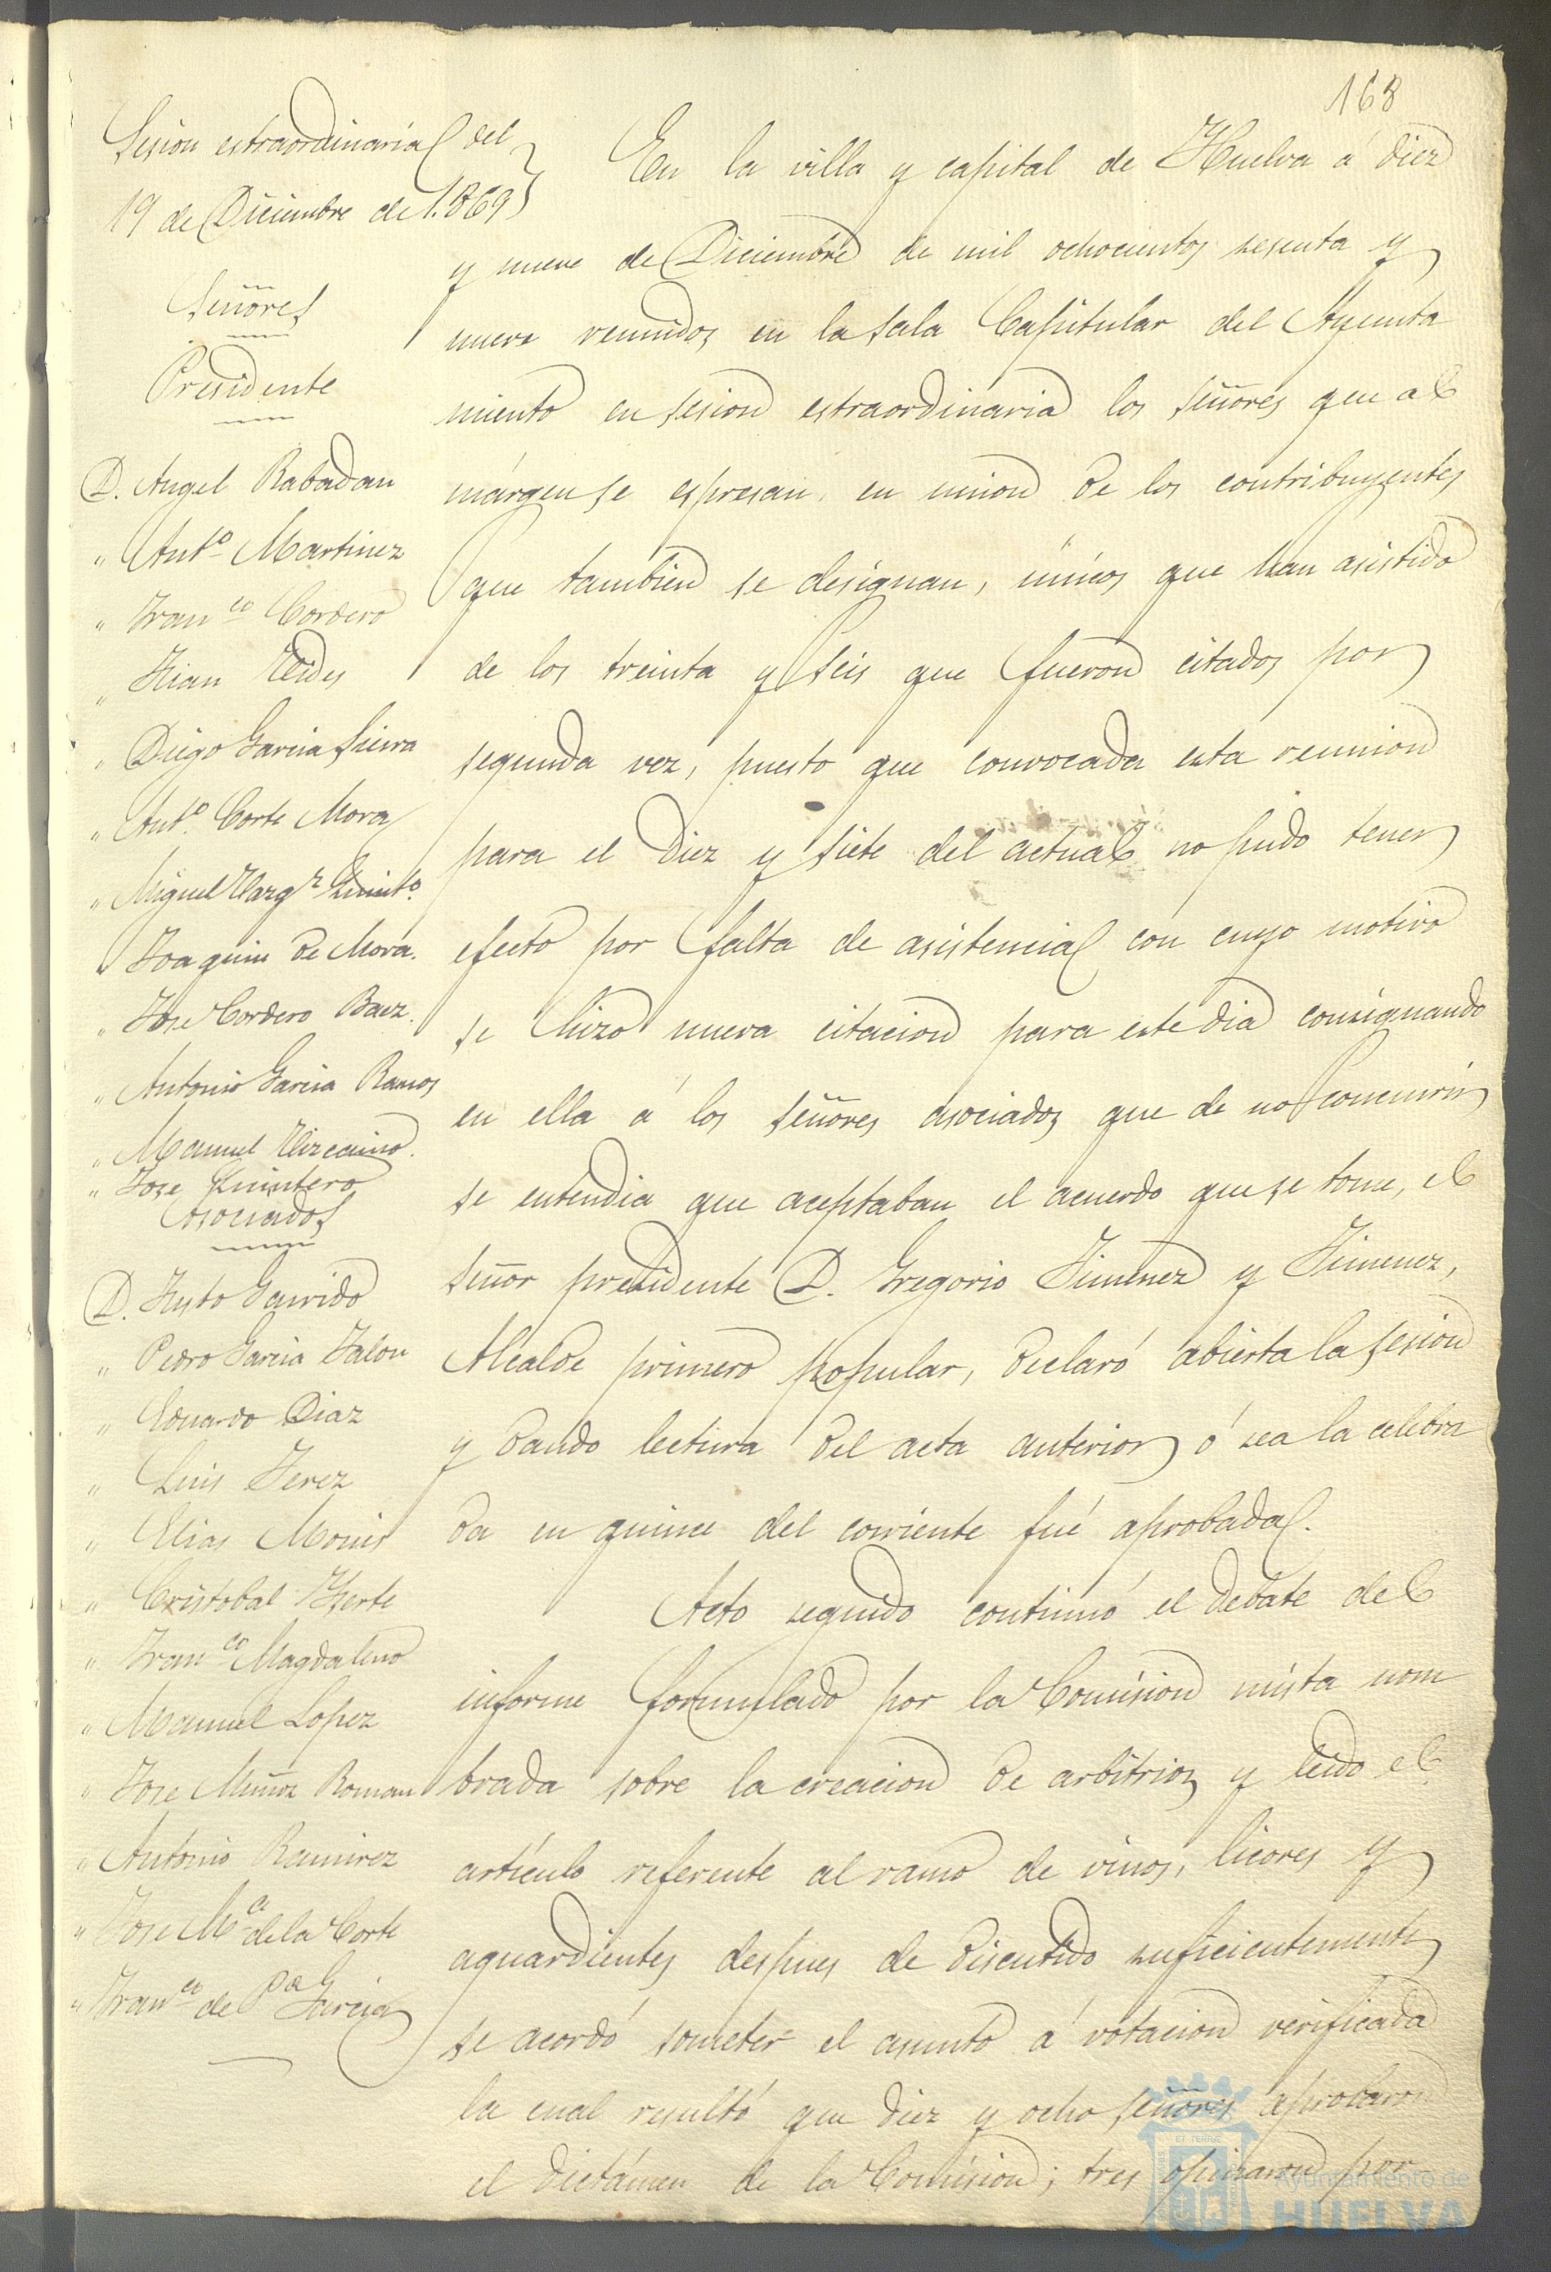 168
Sesion estraordinaria del
19 de Diciembre de 1.869
Señores
Presidente
D. Angel Rabadan
" Ant.º Martinez
" Fran.co Cordero
" Juan Vides
" Diego Garcia Sierra
" Ant.º Corte Mora
" Miguel Vazq.z Quint.º
" Joaquin de Mora.
" Jose Cordero Baez.
" Antonio Garcia Ramos
" Manuel Vizcaino.
" Jose Quintero
Asociados
D. Justo Garrido
" Pedro Garcia Jalon
" Eduardo Diaz
" Luis Jerez
" Elias Monis
" Cristobal
" Fran.co Magdaleno
" Manuel Lopez
" Jose Muñoz Roman
" Antonio Ramirez
" Jose M.ª de la Corte
" Fran.co de P.a Garcia
En la villa y capital de Huelva á diez
y nueve de Diciembre de mil ochocientos sesenta y
nueve reunidos en la sala Capitular del Ayunta
miento en sesion estraordinaria los señores que al
márgen se espresan, en union de los contribuyentes
que tambien se designan, únicos que han asistido
de los treinta y seis que fueron citados por
segunda vez, puesto que convocada esta reunion
para el diez y siete del actual no pudo tener
efecto por falta de asistencia con cuyo motivo
se hizo nueva citacion para este dia consignando
en ella á los señores asociados que de no concurrir
se entendia que aceptaban el acuerdo que se tome, el
señor presidente D. Gregorio Jimenez y Jimenez,
Alcalde primero popular, declaró abierta la sesion
y dando lectura del acta anterior ó sea la celebra
da en quince del corriente fué aprobada.
Acto seguido continuó el debate del
informe formulado por la Comision mista nom
brada sobre la creacion de arbitrios y leido el
artículo referente al ramo de vinos, licores y
aguardientes despues de discutido suficientemente
se acordó someter el asunto á votacion verificada
la cual resultó que diez y ocho señores aprobaron
el dictámen de la Comision; tres opinaron por
Ayuntamiento de
HUELVA